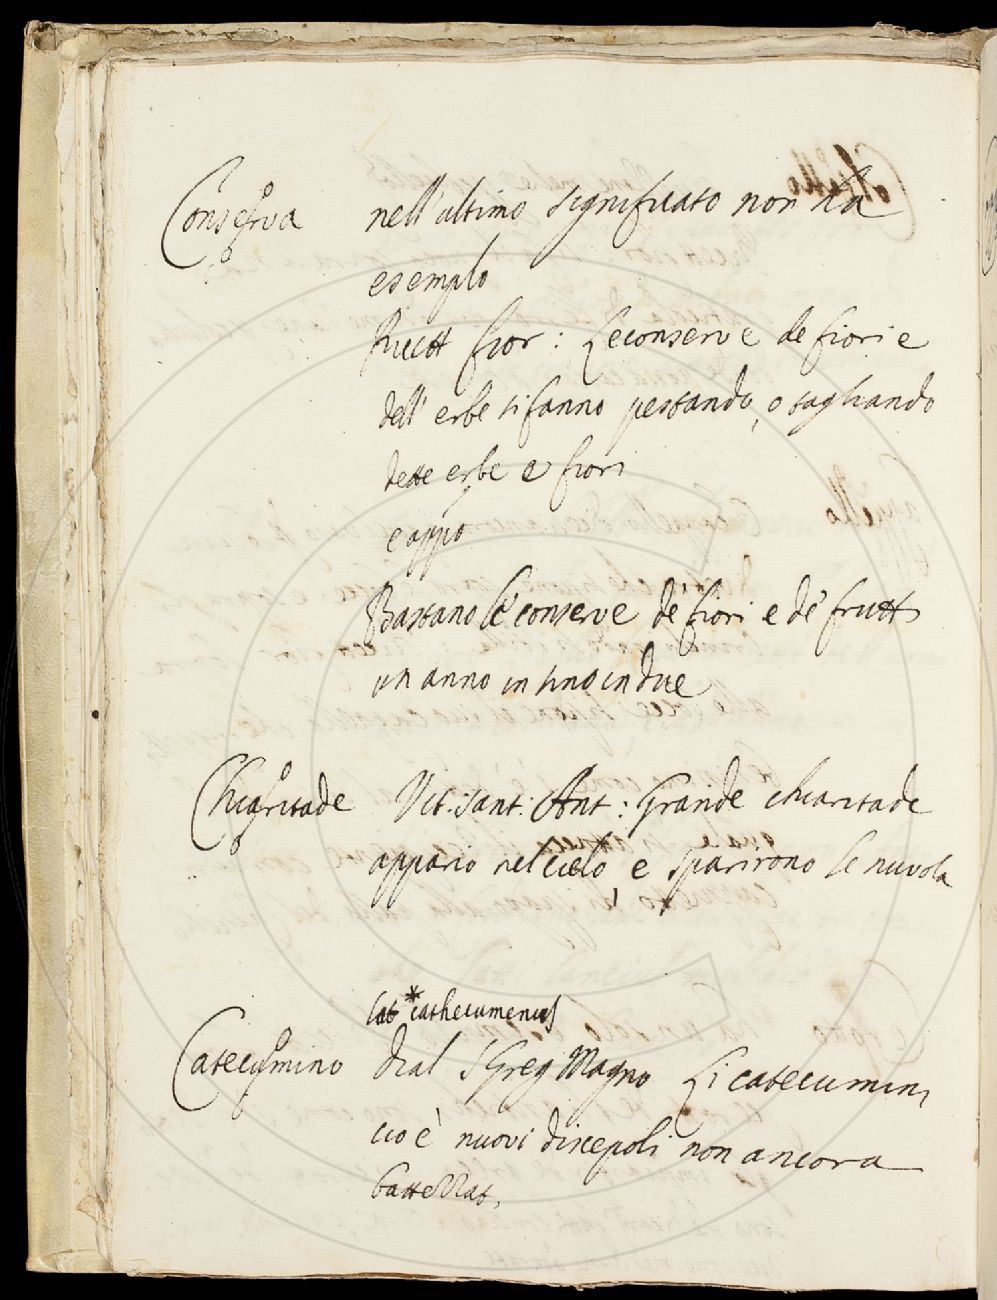 Conserva nell'ultimo significato non ha
esemplo
Ricett fior: Le conserve de fiori e
dell' erbe si fanno pestando, o tagliando
dette erbe e fiori
e appo
Bastano le conserve de' fiori e de' frutti
un anno in sino in due
Chiaritade Vit: Sant: Ant: Grande chiaritade
appario nel cielo, e sparirono le nuvola
lat * cathecumenus
Catecumino Dial S Greg Magno Li catecumini
cio è nuovi discepoli non ancora
battezzati,